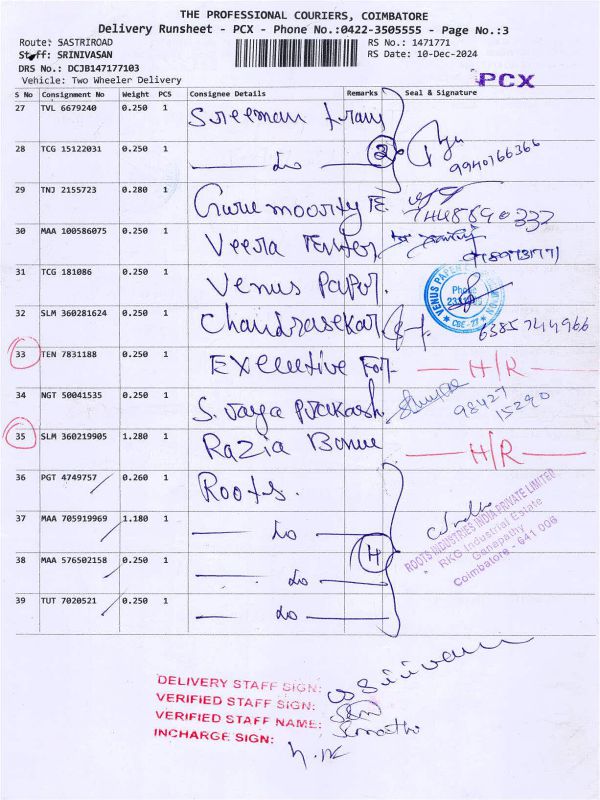 THE PROFESSIONAL COURIERS, COIMBATORE
Delivery Runsheet - PCX - Phone No.:0422-3505555 - Page No.:3
Route: SASTRIROAD
RS No.: 1471771
Staff: SRINIVASAN
RS Date: 10-Dec-2024
DRS No.: DCJB147177103
Vehicle: Two Wheeler Delivery
PCX
S No Consignment No Weight PCS Consignee Details Remarks Seal & Signature
27 TVL 6679240 0.250 1 Sreeman
28 TCG 15122031 0.250 1 Do 2 9940166366
29 TNJ 2155723 0.280 1 Guru moorthy
30 MAA 100586075 0.250 1 Veera
31 TCG 181086 0.250 1 Venus Paper.
VENUS PAPER
Phone
CBE - 27
32 SLM 360281624 0.250 1 Chandrasekar 6385744966
33 TEN 7831188 0.250 1 Executive For H/R
34 NGT 50041535 0.250 1 S. Jaya Prakash 98427
15290
35 SLM 360219905 1.280 1 Razia Banu H/R
36 PGT 4749757 0.260 1 Roots.
37 MAA 705919969 1.180 1 Do
38 MAA 576502158 0.250 1 Do 4
39 TUT 7020521 0.250 1 Do
ROOTS INDUSTRIES INDIA PRIVATE LIMITED
RKG Industrial Estate
Ganapathy
Coimbatore - 641 006
DELIVERY STAFF SIGN:
VERIFIED STAFF SIGN:
VERIFIED STAFF NAME:
INCHARGE SIGN: